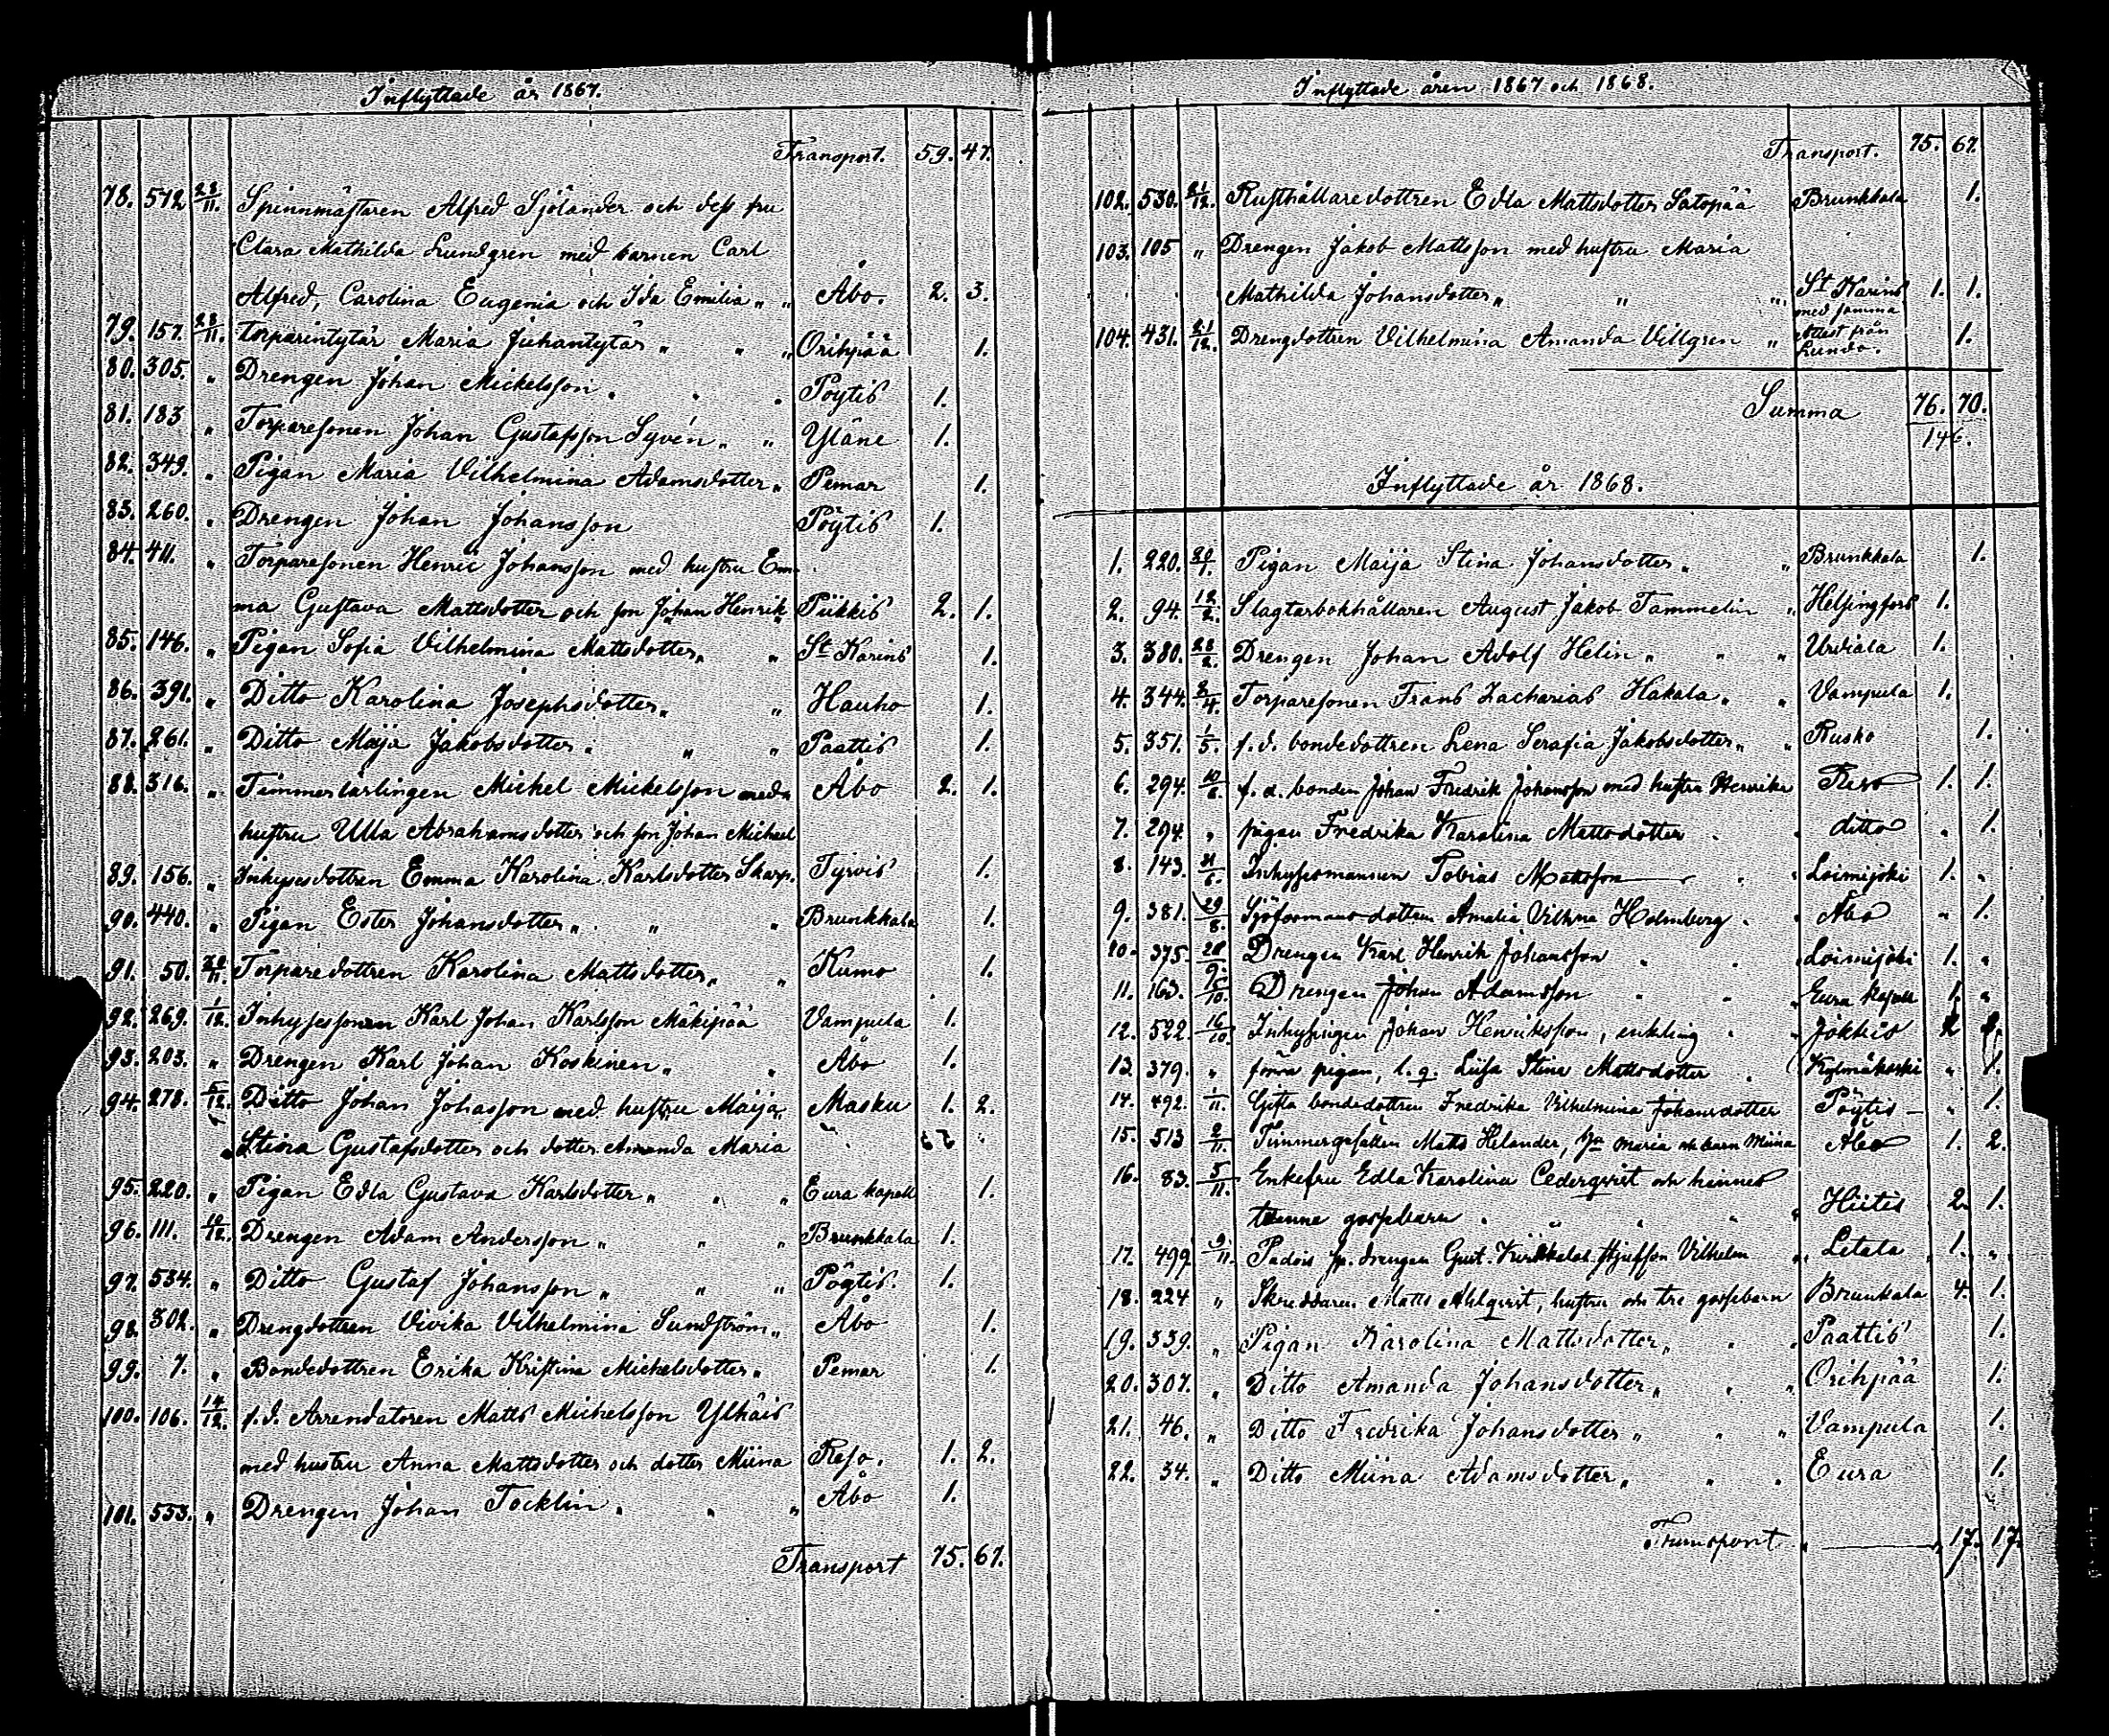 Inflyttade år 1867.
Transport. 59. 47.
78. 572 28/11. Spinnmästaren Alfred Sjölander och dess fru
Clara Mathilda Lundgren med barnen Carl
Alfred, Carolina Eugenia och Ida Emilia „ „ Åbo. 2. 3.
79. 157. 28/11. torparintytär Maria Juhantytär „ „ „ Orihpää 1.
80. 305. „ Drengen Johan Mickelsson. . . Pöytis 1.
81. 183 „ Torparesonen Johan Gustafsson Syvén. „ Yläne 1.
82. 349. „ Pigan Maria Vilhelmina Adamsdotter „ Pemar 1.
83. 260. „ Drengen Johan Johansson Pöytis 1.
84. 411. „ Torparesonen Henric Johansson med hustru Em-
ma Gustava Mattsdotter och son Johan Henrik Piikkis 2. 1.
85. 146. „ Pigan Sofia Vilhelmina Mattsdotter „ „ St Karins 1.
86. 391. „ Ditto Karolina Josephsdotter „ „ Hauho 1.
87. 261. „ Ditto Maija Jakobsdotter. „ „ Paattis 1.
88. 316. „ Timmerlärlingen Michel Mickelsson med Åbo 2. 1.
hustru Ulla Abrahamsdotter och son Johan Michael
89. 156. „ Inhysesdottren Emma Karolina Karlsdotter Skarp. Tyrvis 1.
90. 440. „ Pigan Ester Johansdotter „ „ „ Brunkkala 1.
91. 50. /11. Torparedottren Karolina Mattsdotter „ „ Kumo 1.
92. 269. 1/12. Inhysessonen Karl Johan Karlsson Mäkipää Vampula 1.
93. 203. „ Drengen Karl Johan Koskinen „ „ Åbo 1.
94. 278. 5/12. Ditto Johan Johasson med hustru Maija Masku 1. 2.
Stina Gustafsdotter och dotter Amanda Maria
95. 220. „ Pigan Edla Gustava Karlsdotter „ „ „ Eura kapell 1.
96. 111. 10/12. Drengen Adam Andersson „ „ „ Brunkkala 1.
97. 534. „ Ditto Gustaf Johansson „ „ „ Pöytis. 1.
98. 302. „ Drengdottren Vivika Vilhelmina Sundström „ Åbo 1.
99. 7. „ Bondedottren Erika Kristina Michelsdotter „ Pemar 1.
100. 106. 14/12. f.d. Arrendatoren Matts Michelsson Ylhäis
med hustru Anna Mattsdotter och dotter Miina Reso. 1. 2.
101. 553. „ Drengen Johan Tocklin. „ „ Åbo 1.
Transport 75. 67.
Inflyttade åren 1867 och 1868.
Transport. 75. 67.
102. 530. 21/12. Rusthållaredottren Edla Mattsdotter Satopää Brunkkala 1.
103. 105 „ Drengen Jakob Mattsson med hustru Maria
Mathilda Johansdotter „ „ „ St Karins 1. 1.
104. 431. 21/12. Drengdottren Vilhelmina Amanda Villgren „ med samma attest från Lundo. 1.
Summa 76. 70.
146.
Inflyttade år 1868.
1. 220. /1. Pigan Maija Stina Johansdotter. „ Brunkkala 1.
2. 94. 12/2. Slagtarbokhållaren August Jakob Tammelin „ Helsingfors 1.
3. 380. 28/2. Drengen Johan Adolf Helin „ „ „ Urdiala 1.
4. 344. 2/4. Torparesonen Frans Zacharias Hakala. „ Vampula 1.
5. 351. 1/5. f.d. bondedottren Lena Serafia Jakobsdotter „ „ Rusko 1.
6. 294. 10/6. f.d. bonden Johan Fredrik Johansson med hustru Henrika Reso 1. 1.
7. 294. „ pigan Fredrika Karolina Mattsdotter . . ditto „ 1.
8. 143. /6. Inhysesmannen Tobias Mattsson . „ Loimijoki 1. „
9. 381. 29/8. Sjöformansdottren Amalia Vilhna Holmberg . . Åbo „ 1.
10. 375. 28/9. Drengen Karl Henrik Johansson . . „ Loimijoki 1. „
11. 163. 15/10. Drengen Johan Adamsson . . „ Eura kapell 1. „
12. 522. 16/10. Inhysingen Johan Henriksson, enkling . „ Jokkis
13. 379. „ förra pigan, l. q. Liisa Stina Mattsdotter . Kylmäkoski „ 1.
14. 492. 1/11. Gifta bondedottren Fredrika Vilhelmina Johansdotter Pöytis „ 1.
15. 513 2/11. Timmergesällen Matts Helander, hu Maria och barn Miina Åbo 1. 2.
16. 83. 5/11. Enkefru Edla Karolina Cederqvist och hennes
tvenne gossebarn . „ . „ „ Hiitis 2. 1.
17. 499. 9/11. drengen Gust. Vilhelm „ Letala 1. „
18. 224 „ Skreddaren Matts Ahlqvist, hustru och tre gossebarn Brunkala 4. 1.
19. 339. „ Pigan Karolina Mattsdotter „ . „ Paattis 1.
20. 307. „ Ditto Amanda Johansdotter „ „ „ Orihpää 1.
21. 46. „ Ditto Fredrika Johansdotter „ „ „ Vampula 1.
22. 34. „ Ditto Miina Adamsdotter „ „ . Eura 1.
Transport 17. 17.